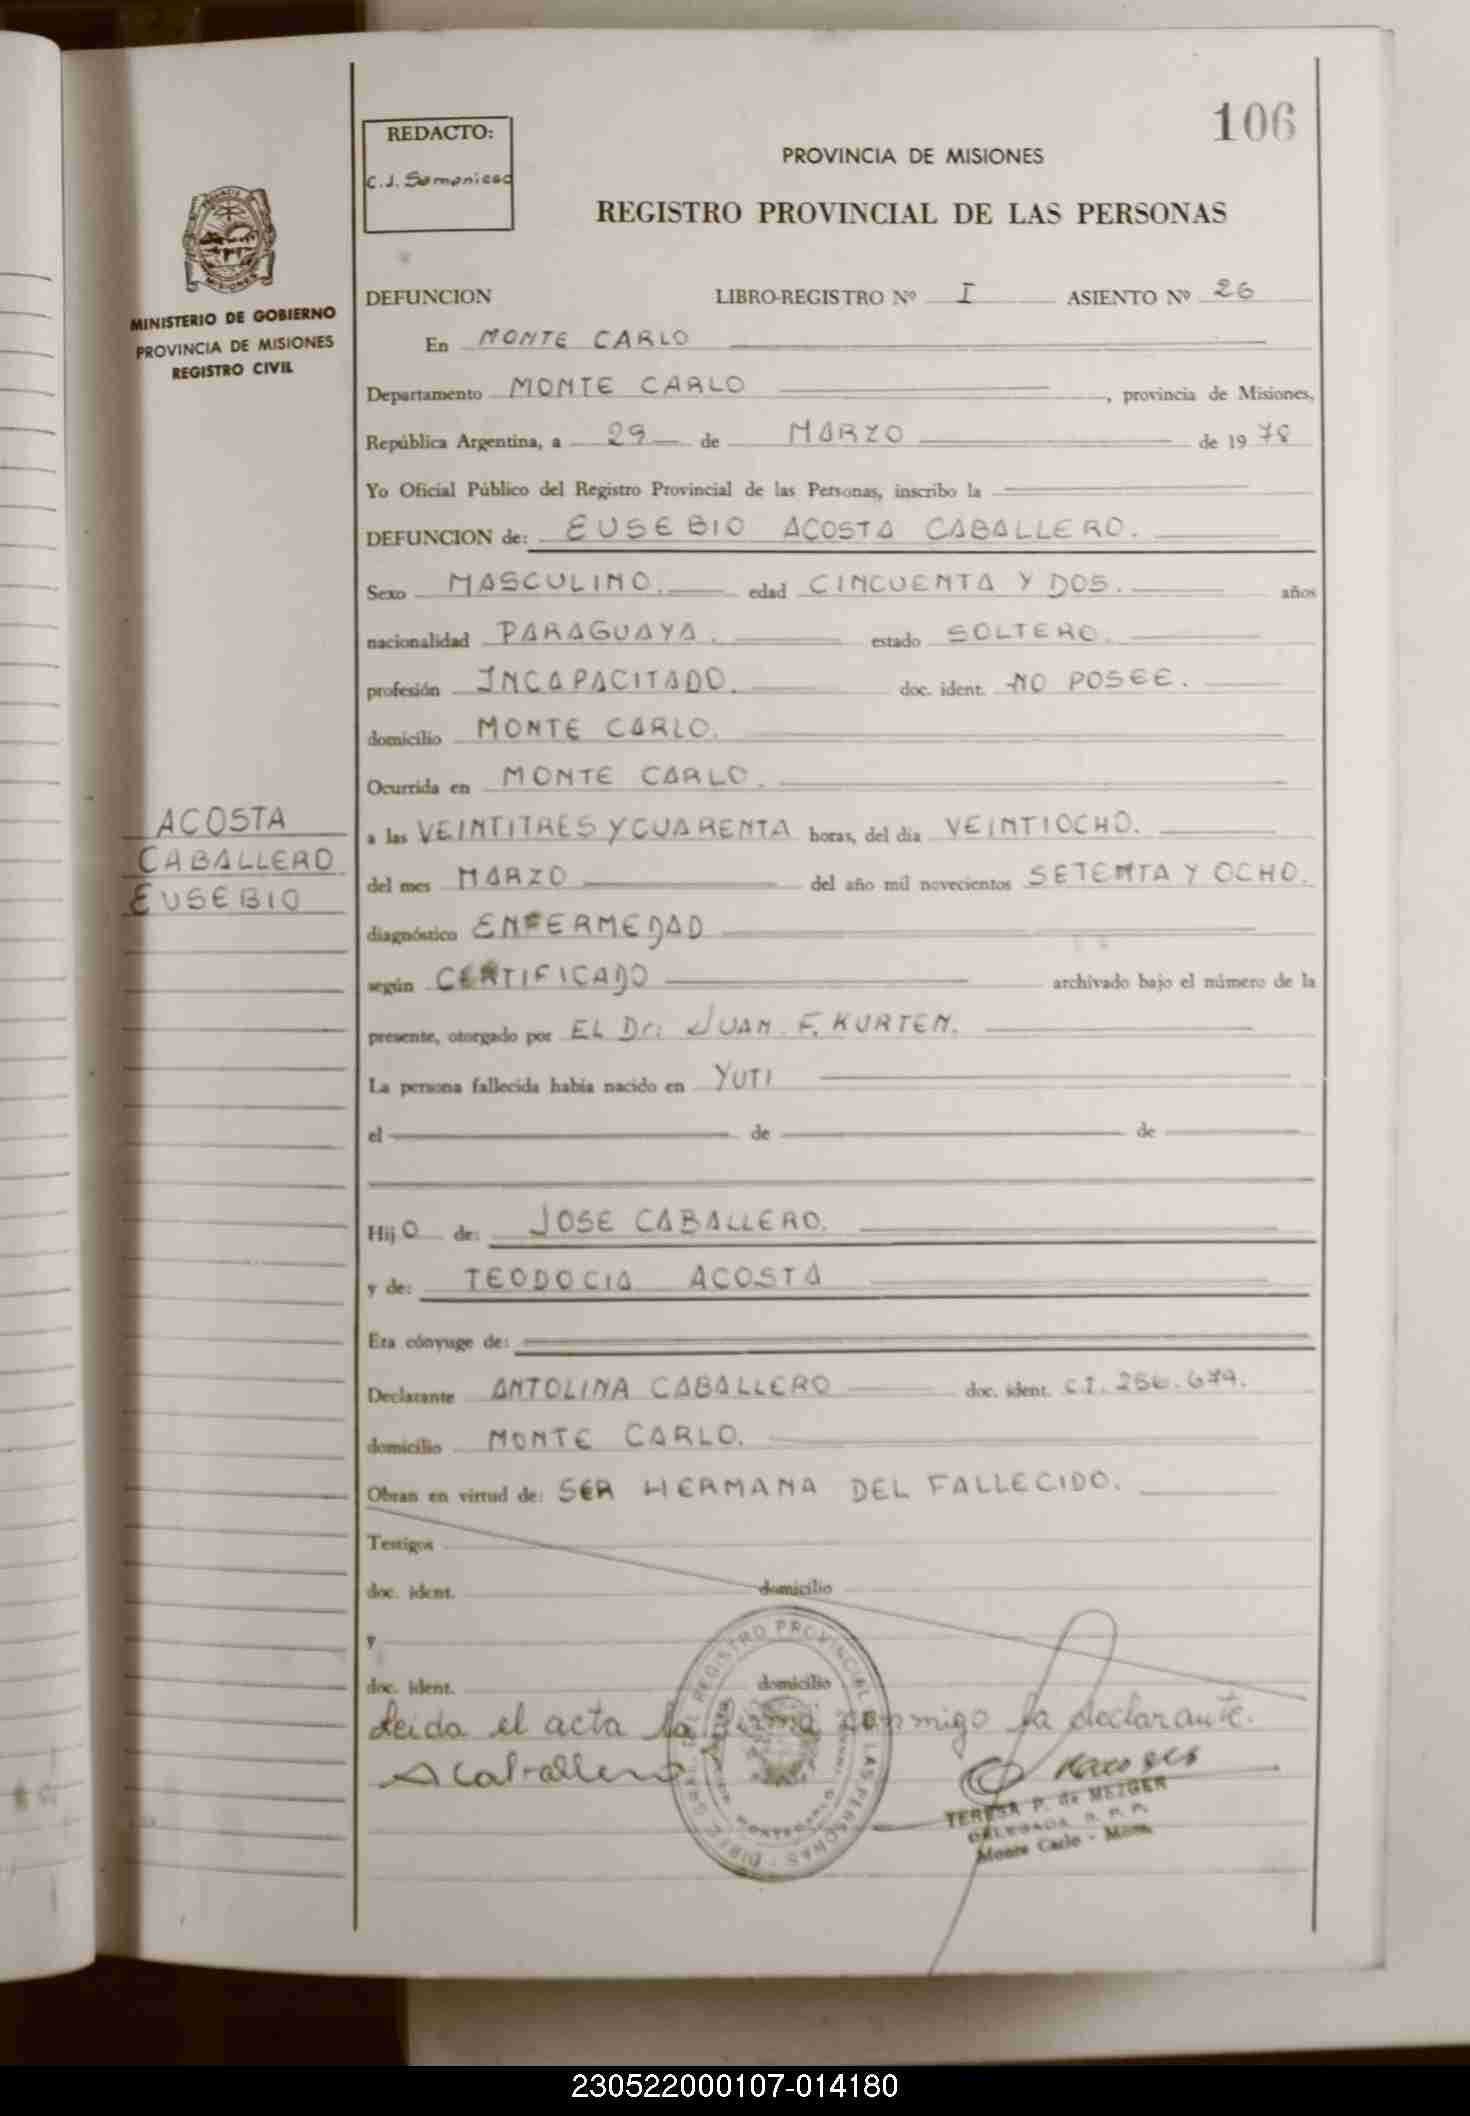 106
REDACTO:
C.J. Samaniego
PROVINCIA DE MISIONES
REGISTRO PROVINCIAL DE LAS PERSONAS
MINISTERIO DE GOBIERNO
PROVINCIA DE MISIONES
REGISTRO CIVIL
DEFUNCION LIBRO-REGISTRO Nº I ASIENTO Nº 26
En MONTE CARLO
Departamento MONTE CARLO, provincia de Misiones,
República Argentina, a 29 de MARZO de 1978
Yo Oficial Público del Registro Provincial de las Personas, inscribo la
DEFUNCION de: EUSEBIO ACOSTA CABALLERO.
Sexo MASCULINO. edad CINCUENTA Y DOS. años
nacionalidad PARAGUAYA. estado SOLTERO.
profesión INCAPACITADO. doc. ident. NO POSEE.
domicilio MONTE CARLO.
Ocurrida en MONTE CARLO.
ACOSTA
CABALLERO
EUSEBIO
a las VEINTITRES Y CUARENTA horas, del día VEINTIOCHO.
del mes MARZO del año mil novecientos SETENTA Y OCHO.
diagnóstico ENFERMEDAD
según CERTIFICADO archivado bajo el número de la
presente, otorgado por EL Dr: JUAN F. KURTEN.
La persona fallecida había nacido en YUTI
el de de
Hijo de: JOSE CABALLERO.
y de: TEODOCIA ACOSTA
Era cónyuge de:
Declarante ANTOLINA CABALLERO doc. ident. C.I. 256.679.
domicilio MONTE CARLO.
Obran en virtud de: SER HERMANA DEL FALLECIDO.
Testigos
doc. ident. domicilio
y
doc. ident. domicilio
Leida el acta la firma conmigo la declarante.
A Caballero
TERESA P. de MEZGER
DELEGADA R. P. P.
Monte Carlo - Mnes.
DIREC. GRAL. DEL REGISTRO PROVINCIAL DE LAS PERSONAS
230522000107-014180